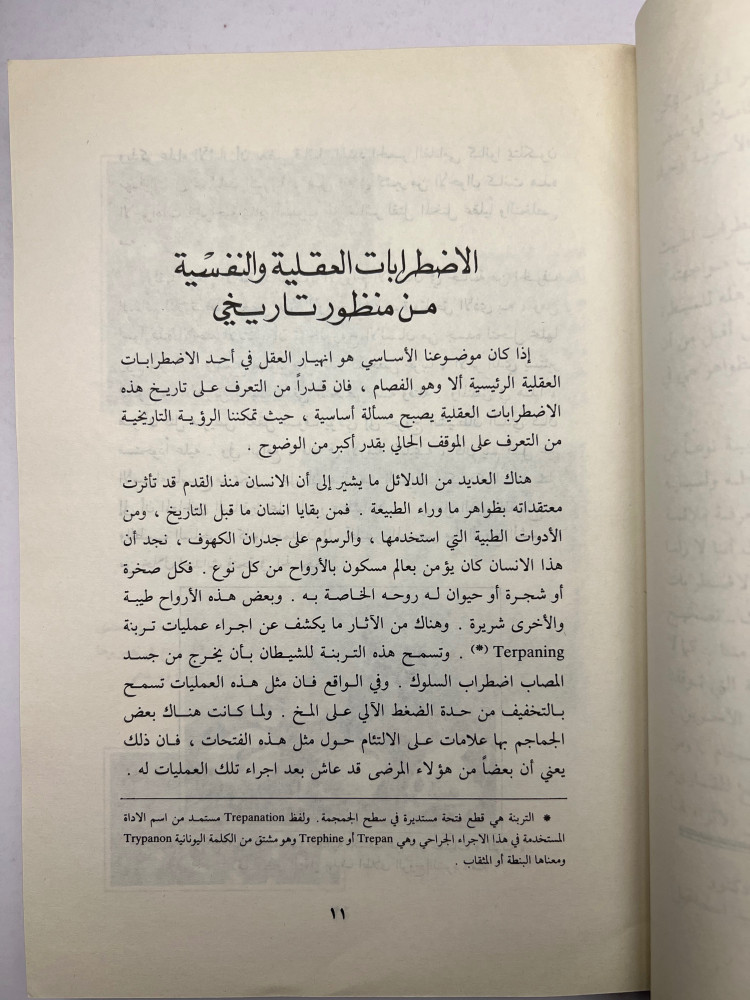 الاضطرابات العقلية والنفسية
من منظور تاريخي
إذا كان موضوعنا الأساسي هو انهيار العقل في أحد الاضطرابات
العقلية الرئيسية ألا وهو الفصام ، فان قدراً من التعرف على تاريخ هذه
الاضطرابات العقلية يصبح مسألة أساسية ، حيث تمكننا الرؤية التاريخية
من التعرف على الموقف الحالي بقدر أكبر من الوضوح .
هناك العديد من الدلائل ما يشير إلى أن الانسان منذ القدم قد تأثرت
معتقداته بظواهر ما وراء الطبيعة . فمن بقايا انسان ما قبل التاريخ ، ومن
الأدوات الطبية التي استخدمها ، والرسوم على جدران الكهوف ، نجد أن
هذا الانسان كان يؤمن بعالم مسكون بالأرواح من كل نوع . فكل صخرة
أو شجرة أو حيوان له روحه الخاصة به . وبعض هذه الأرواح طيبة
والأخرى شريرة . وهناك من الآثار ما يكشف عن اجراء عمليات تربنة
Terpaning (*) . وتسمح هذه التربنة للشيطان بأن يخرج من جسد
المصاب اضطراب السلوك . وفي الواقع فان مثل هذه العمليات تسمح
بالتخفيف من حدة الضغط الآلي على المخ . ولما كانت هناك بعض
الجماجم بها علامات على الالتئام حول مثل هذه الفتحات ، فان ذلك
يعني أن بعضاً من هؤلاء المرضى قد عاش بعد اجراء تلك العمليات له .
* التربنة هي قطع فتحة مستديرة في سطح الجمجمة . ولفظ Trepanation مستمد من اسم الاداة
المستخدمة في هذا الاجراء الجراحي وهي Trepan أو Trephine وهو مشتق من الكلمة اليونانية Trypanon
ومعناها البنطة أو المثقاب .
١١